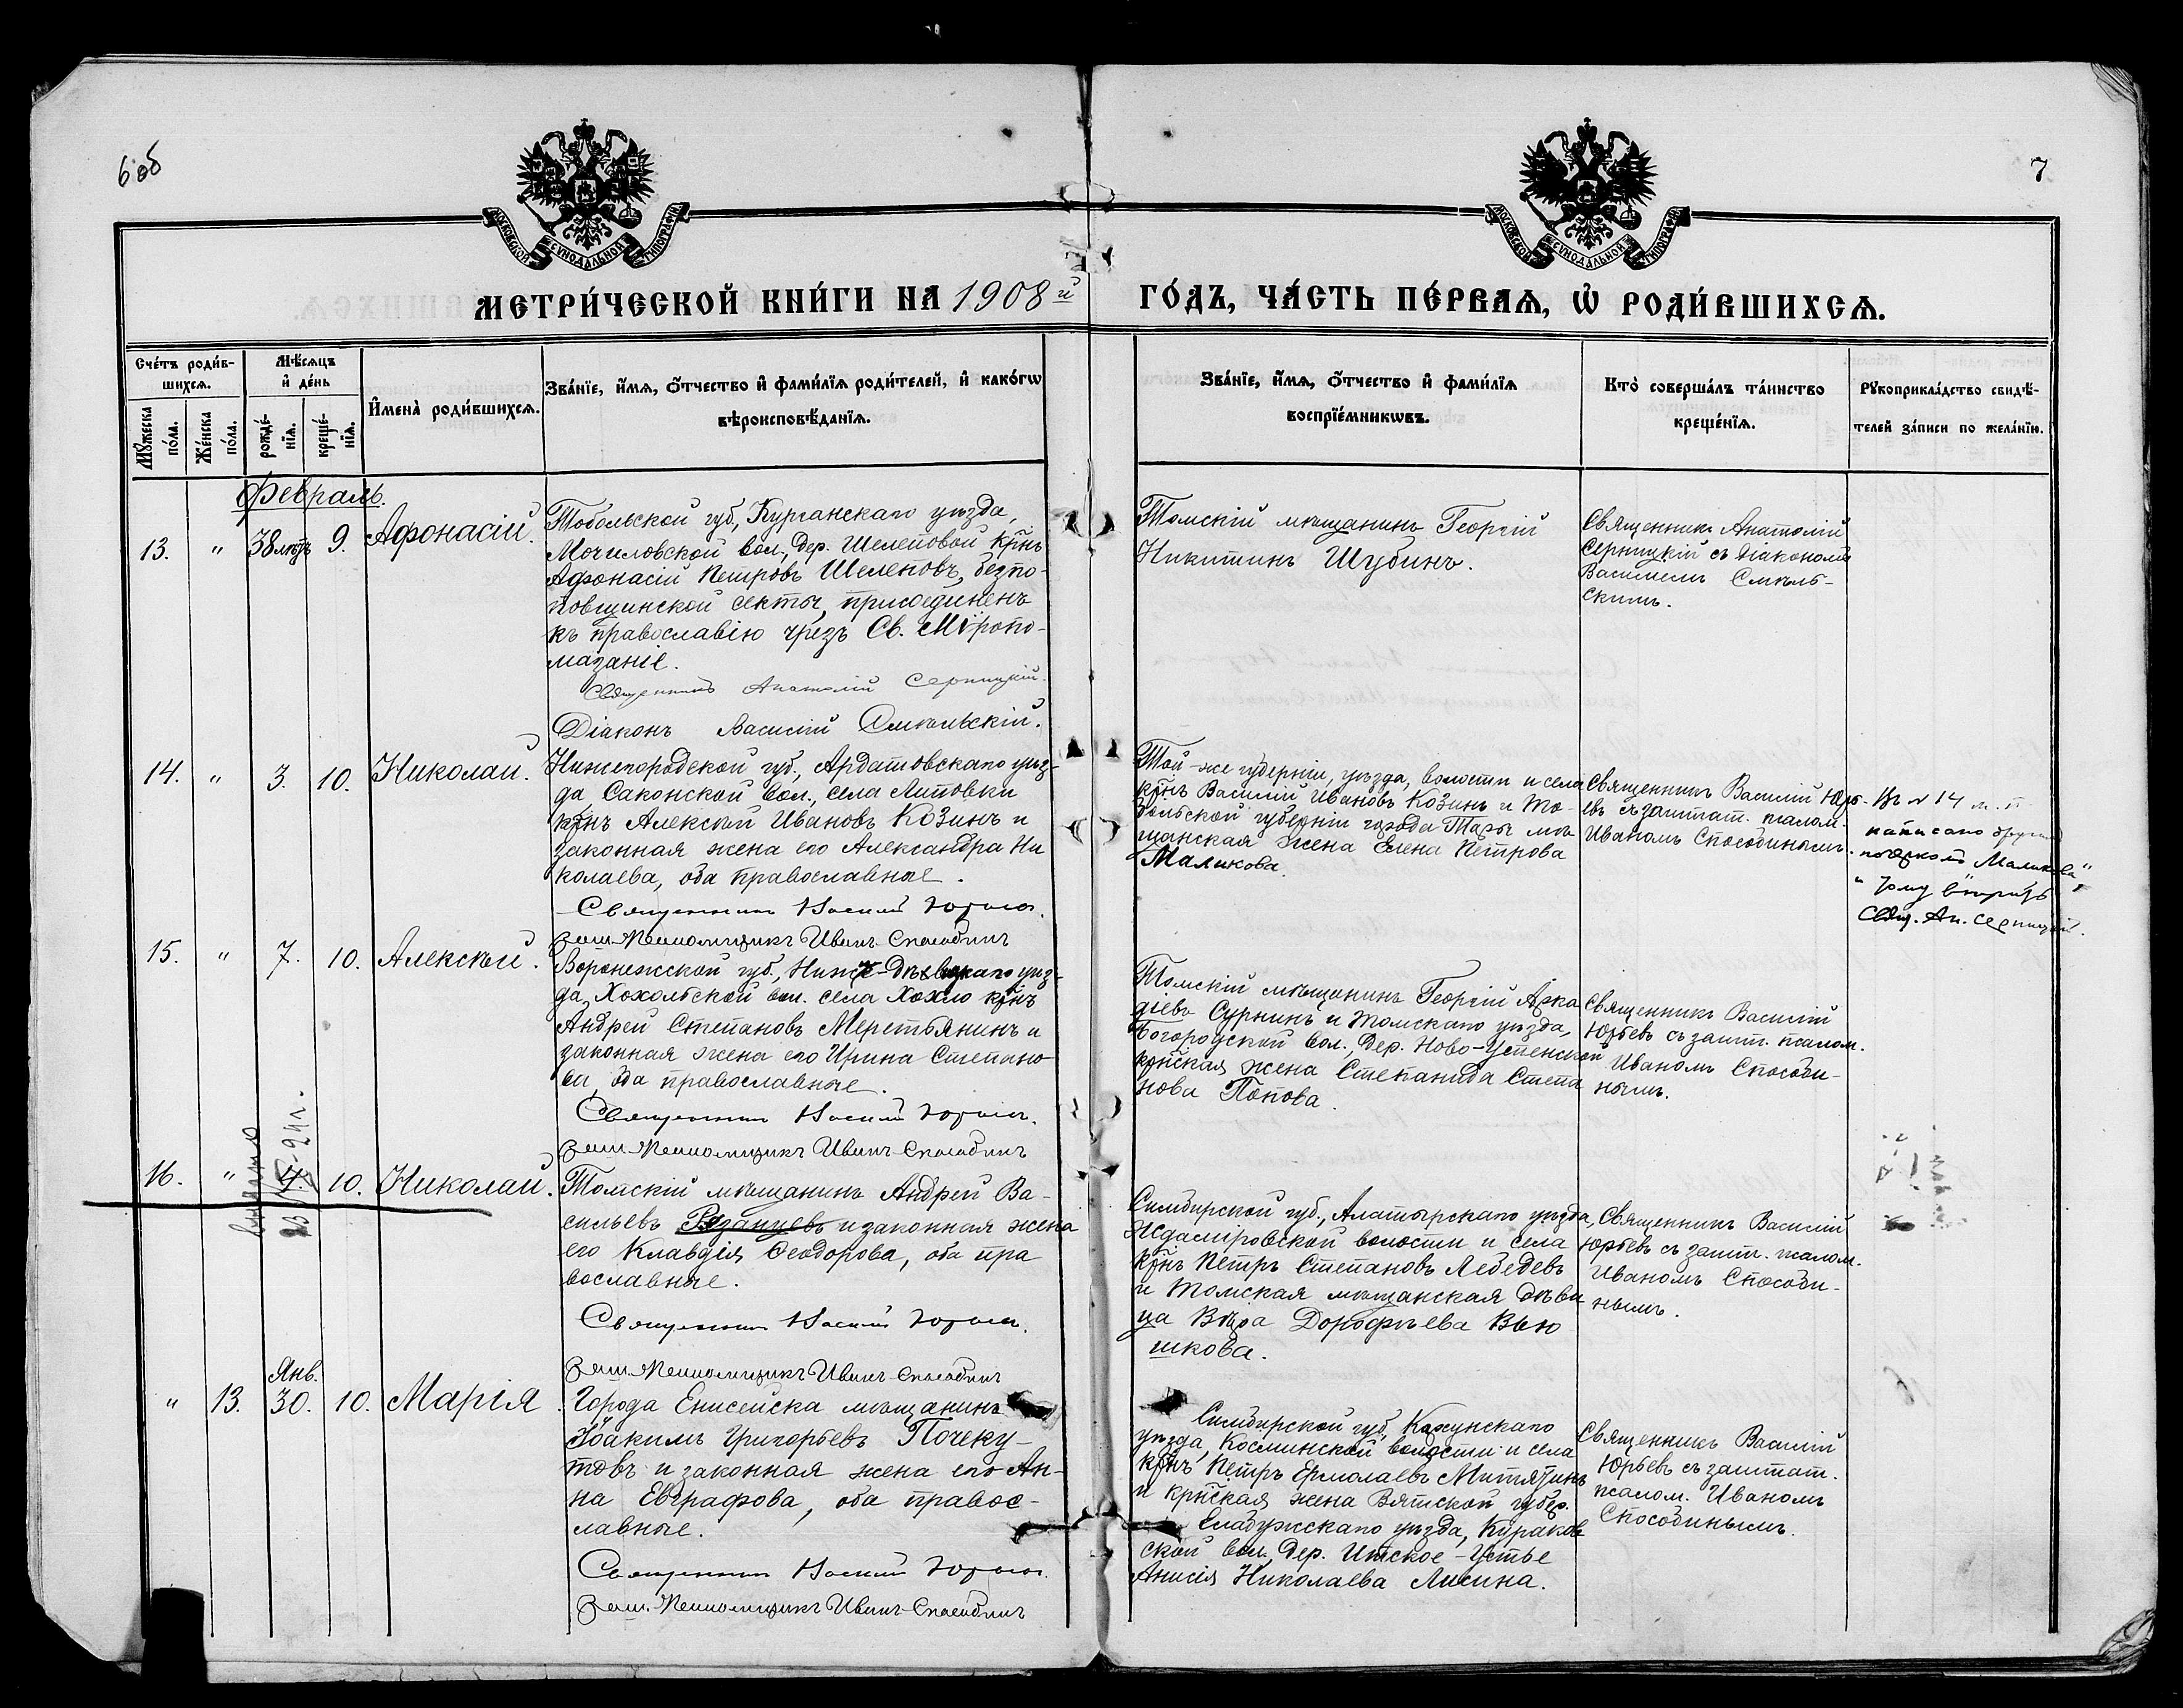 6 об
7
МОСКОВСКОЙ СѴНОДАЛЬНОЙ ТИПОГРАФІИ
МОСКОВСКОЙ СѴНОДАЛЬНОЙ ТИПОГРАФІИ
МЕТРИ́ЧЕСКОЙ КНИ́ГИ НА 1908й ГО́ДЪ, ЧА́СТЬ ПЕ́РВАѦ, Ѡ҆ РОДИ́ВШИХСѦ.
Сче́тъ роди́в-
шихсѧ.
Мѣ́сѧцъ
и҆ де́нь
Мꙋ́жеска
по́ла.
Же́нска
по́ла.
рожде́-
нїѧ.
креще́-
нїѧ.
И҆мена̀ роди́вшихсѧ.
Зва́нїе, и҆́мѧ, ѻ҆́тчество и҆ фами́лїѧ роди́телей, и҆ како́гѡ
вѣроисповѣ́данїѧ.
Зва́нїе, и҆́мѧ, ѻ҆́тчество и҆ фами́лїѧ
воспрїе́мникѡвъ.
Кто̀ соверша́лъ та́инство
креще́нїѧ.
Рꙋкоприкла́дство свидѣ́-
телей за́писи по жела́нїю.
Февраль.
13. " 38 лѣтъ 9. Афонасій.
Тобольской губ., Курганскаго уѣзда,
Мочиловской вол., дер. Шелеповой крнъ
Афонасій Петровъ Шелеповъ, безпо-
повщинской секты, присоединенъ
къ православію чрезъ Св. Мѵропо-
мазаніе.
Священникъ Анатолій Серницкій.
Діаконъ Василій Смѣльскій.
Томскій мѣщанинъ Георгій
Никитинъ Шубинъ.
Священникъ Анатолій
Серницкій съ діакономъ
Василіемъ Смѣль-
скимъ.
14. " 3. 10. Николай.
Нижегородской губ., Ардатовскаго уѣз-
да, Саконской вол., села Липовки
крнъ Алексѣй Ивановъ Козинъ и
законная жена его Александра Ни
колаева, оба православные.
Священникъ Василій Юрьевъ.
Зашт. Псаломщикъ Иванъ Способинъ
Той-же губерніи, уѣзда, волости и села
крнъ Василій Ивановъ Козинъ и То-
больской губерніи города Тары мѣ
щанская жена Елена Петрова
Маликова.
Священникъ Василій Юрь-
евъ съ заштат. псалом.
Иваномъ Способинымъ.
Въ № 14 м. п.
написано другимъ
почеркомъ "Маликова"
Свящ. Ан. Серницкій.
15. " 7. 10. Алексѣй.
Воронежской губ., Нижне-Дѣвицкаго уѣз-
да, Хохольской вол. села Хохло крнъ
Андрей Степановъ Меретьянинъ и
законная жена его Ирина Степано-
ва, оба православные.
Священникъ Василій Юрьевъ.
Зашт. Псаломщикъ Иванъ Способинъ
Томскій мѣщанинъ Георгій Арка
діевъ Сурнинъ и Томскаго уѣзда,
Богородской вол., дер. Ново-Успенской
крнская жена Степанида Степа
нова Попова.
Священникъ Василій
Юрьевъ съ зашт. псалом.
Иваномъ Способи-
нымъ.
16. " 4. 10. Николай.
Томскій мѣщанинъ Андрей Ва-
сильевъ Рязанцевъ и законная жена
его Клавдія Ѳеодорова, оба пра
вославные.
Священникъ Василій Юрьевъ.
Зашт. Псаломщикъ Иванъ Способинъ
Симбирской губ., Алатырскаго уѣзда,
Ждаміровской волости и села
крнъ Петръ Степановъ Лебедевъ
и Томская мѣщанская дѣви
ца Вѣра Дорофѣева Вью
шкова.
Священникъ Василій
Юрьевъ съ зашт. псалом.
Иваномъ Способи-
нымъ.
" 13. Янв. 30. 10. Марія.
Города Енисейска мѣщанинъ
Іоакимъ Григорьевъ Почеку-
товъ и законная жена его Ан-
на Евграфова, оба правос-
лавные.
Священникъ Василій Юрьевъ.
Зашт. Псаломщикъ Иванъ Способинъ
Симбирской губ., Карсунскаго
уѣзда, Космынской волости и села
крнъ Петръ Ермолаевъ Митятинъ
и крнская жена Вятской губер.
Елабужскаго уѣзда, Кураков
ской вол., дер. Итское-Устье
Анисія Николаева Лисина.
Священникъ Василій
Юрьевъ съ заштат.
псалом. Иваномъ
Способинымъ.